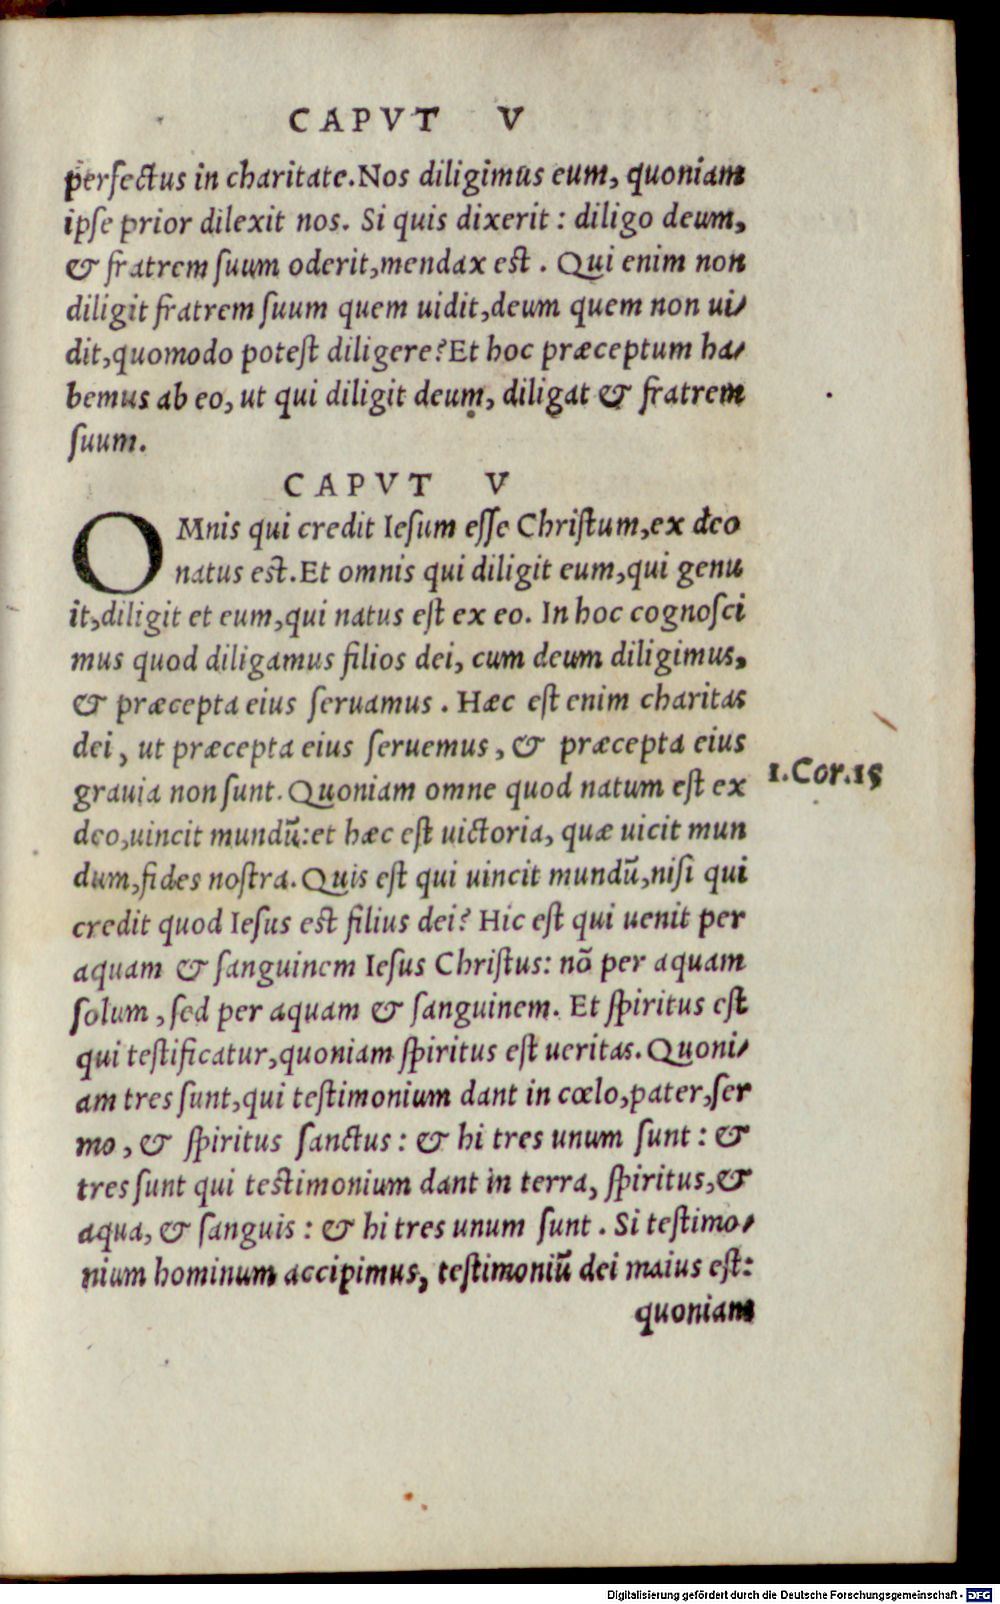 CAPVT V
perfectus in charitate. Nos diligimus eum, quoniam
ipſe prior dilexit nos. Si quis dixerit : diligo deum,
& fratrem ſuum oderit, mendax est . Qui enim non
diligit fratrem ſuum quem uidit, deum quem non ui/
dit, quomodo poteſt diligere? Et hoc præceptum ha/
bemus ab eo, ut qui diligit deum, diligat & fratrem
ſuum.
CAPVT V
OMnis qui credit Ieſum eſſe Chriſtum, ex deo
natus est. Et omnis qui diligit eum, qui genu
it, diligit et eum, qui natus eſt ex eo. In hoc cognoſci
mus quod diligamus filios dei, cum deum diligimus,
& præcepta eius ſeruamus . Hæc eſt enim charitas
dei, ut præcepta eius ſeruemus, & præcepta eius
grauia non ſunt. Quoniam omne quod natum eſt ex
1.Cor.15
deo, uincit mundū: et hæc eſt uictoria, quæ uicit mun
dum, fides noſtra. Quis eſt qui uincit mundū, niſi qui
credit quod Ieſus est filius dei? Hic eſt qui uenit per
aquam & ſanguinem Ieſus Chriſtus: nō per aquam
ſolum, ſed per aquam & ſanguinem. Et ſpiritus eſt
qui teſtificatur, quoniam ſpiritus eſt ueritas. Quoni/
am tres ſunt, qui teſtimonium dant in cœlo, pater, ſer
mo, & ſpiritus ſanctus : & hi tres unum ſunt : &
tres ſunt qui testimonium dant in terra, ſpiritus, &
aqua, & ſanguis : & hi tres unum ſunt . Si teſtimo/
nium hominum accipimus, teſtimoniū dei maius eſt:
quoniam
Digitalisierung gefördert durch die Deutsche Forschungsgemeinschaft - DFG